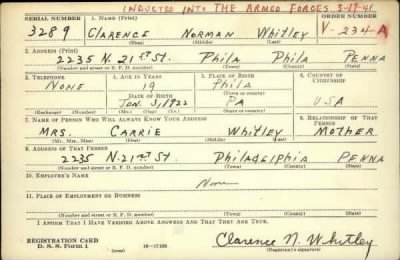 INDUCTED INTO THE ARMED FORCES 3-17-41
SERIAL NUMBER 1. NAME (Print) ORDER NUMBER
3289 CLARENCE NORMAN WHITLEY V-234-A
(First) (Middle) (Last)
2. ADDRESS (Print)
2235 N. 21st St. Phila Phila PENNA
(Number and street or R. F. D. number) (Town) (County) (State)
3. TELEPHONE 4. AGE IN YEARS 5. PLACE OF BIRTH 6. COUNTRY OF CITIZENSHIP
NONE 19 Phila
DATE OF BIRTH (Town or county)
JAN. 3, 1922 PA USA
(Exchange) (Number) (Mo.) (Day) (Yr.) (State or country)
7. NAME OF PERSON WHO WILL ALWAYS KNOW YOUR ADDRESS 8. RELATIONSHIP OF THAT PERSON
MRS. CARRIE WHITLEY MOTHER
(Mr., Mrs., Miss) (First) (Middle) (Last)
9. ADDRESS OF THAT PERSON
2235 N-21st St. PHILADELPHIA PENNA
(Number and street or R. F. D. number) (Town) (County) (State)
10. EMPLOYER'S NAME
None
11. PLACE OF EMPLOYMENT OR BUSINESS
(Number and street or R. F. D. number) (Town) (County) (State)
I AFFIRM THAT I HAVE VERIFIED ABOVE ANSWERS AND THAT THEY ARE TRUE.
REGISTRATION CARD
D. S. S. Form 1 (over) 16-17105 Clarence N. Whitley
(Registrant's signature)